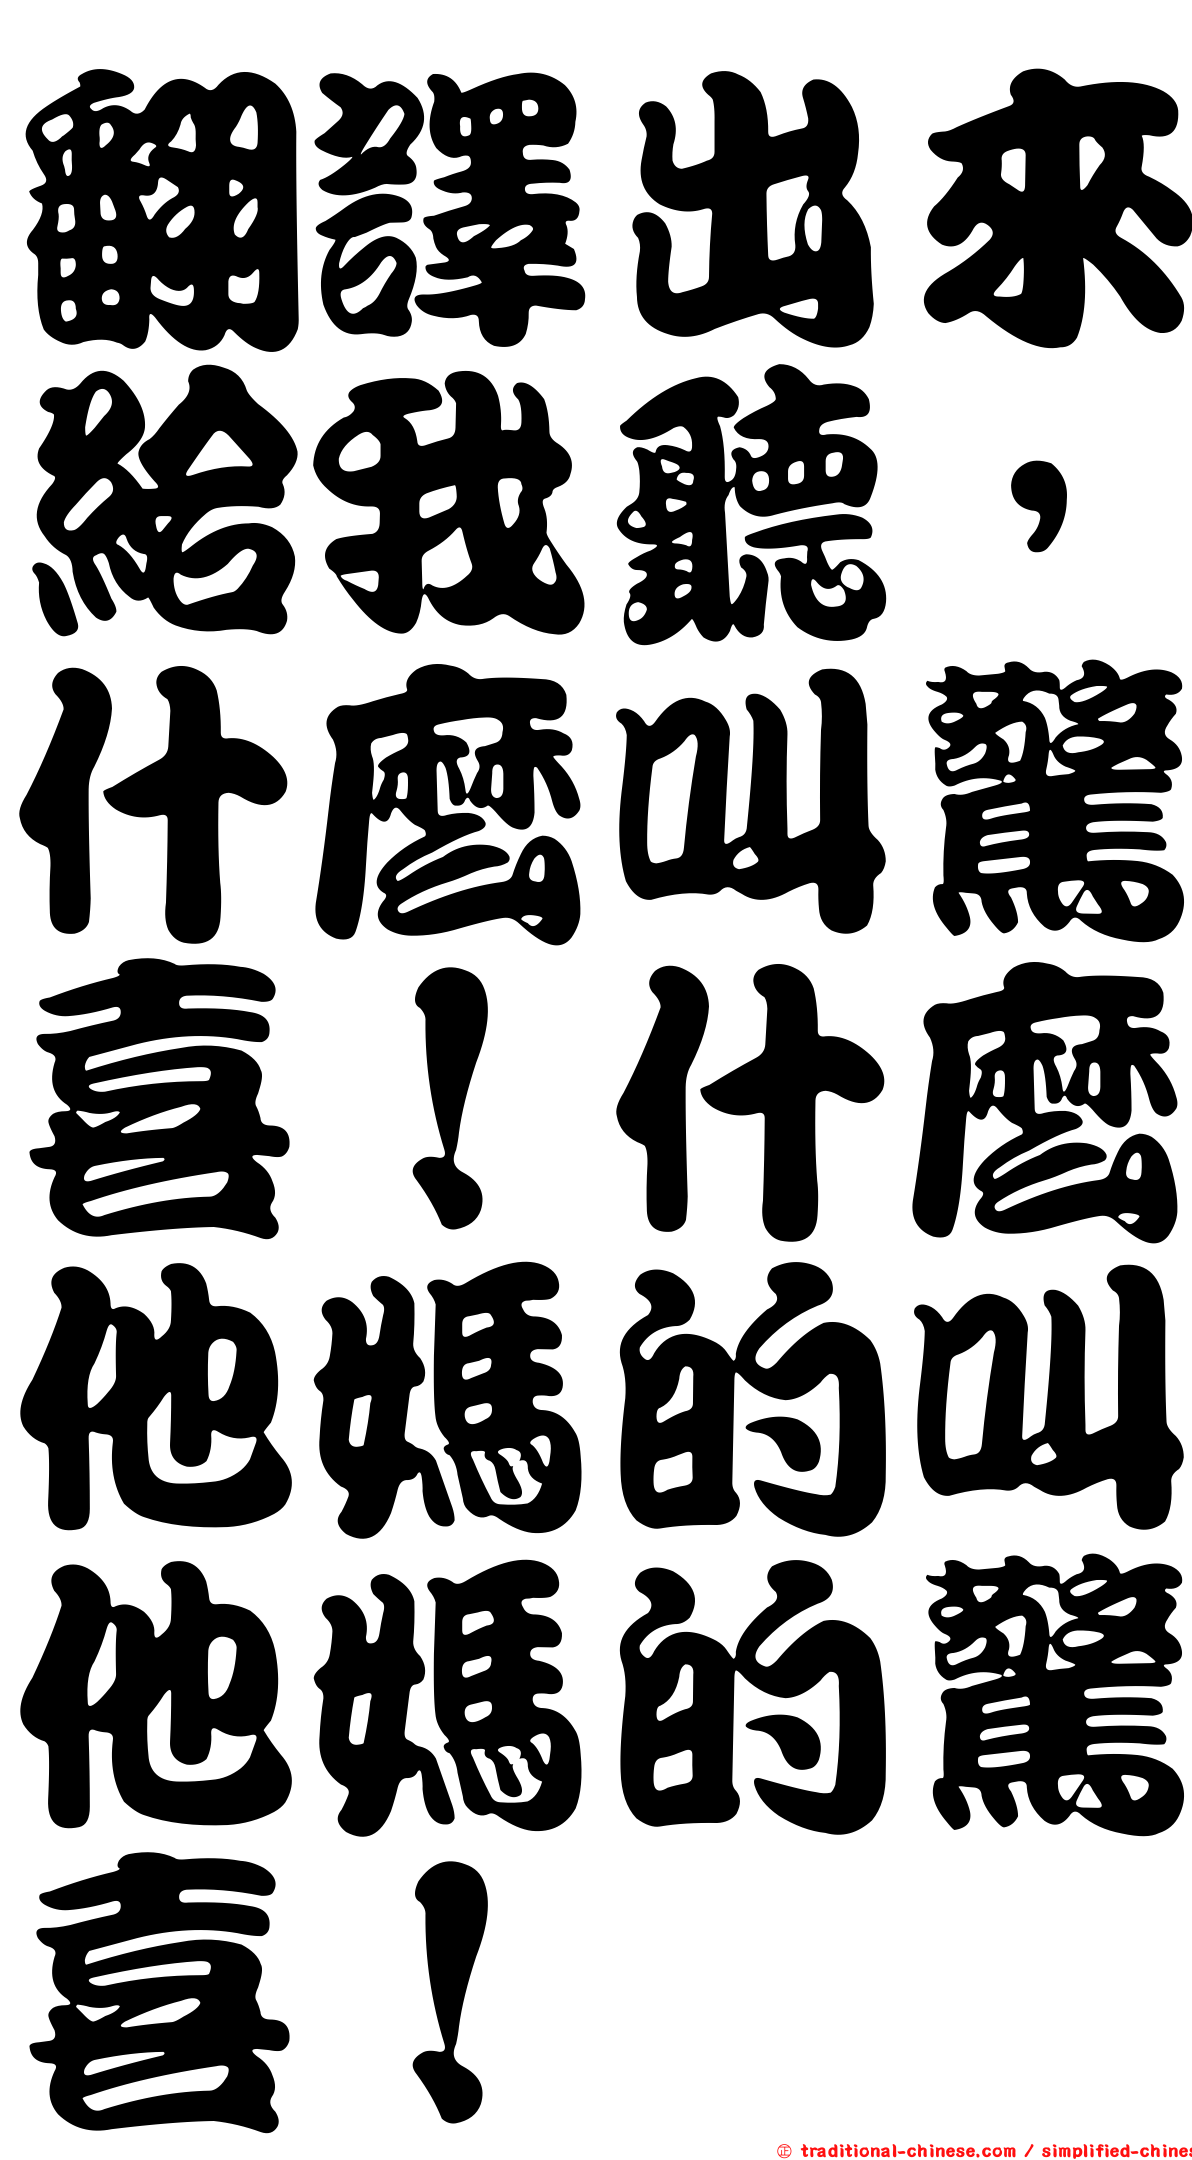 翻譯出來
給我聽，
什麼叫驚
喜！什麼
他媽的叫
他媽的驚
喜！
㊣ traditional-chinese.com / simplified-chines